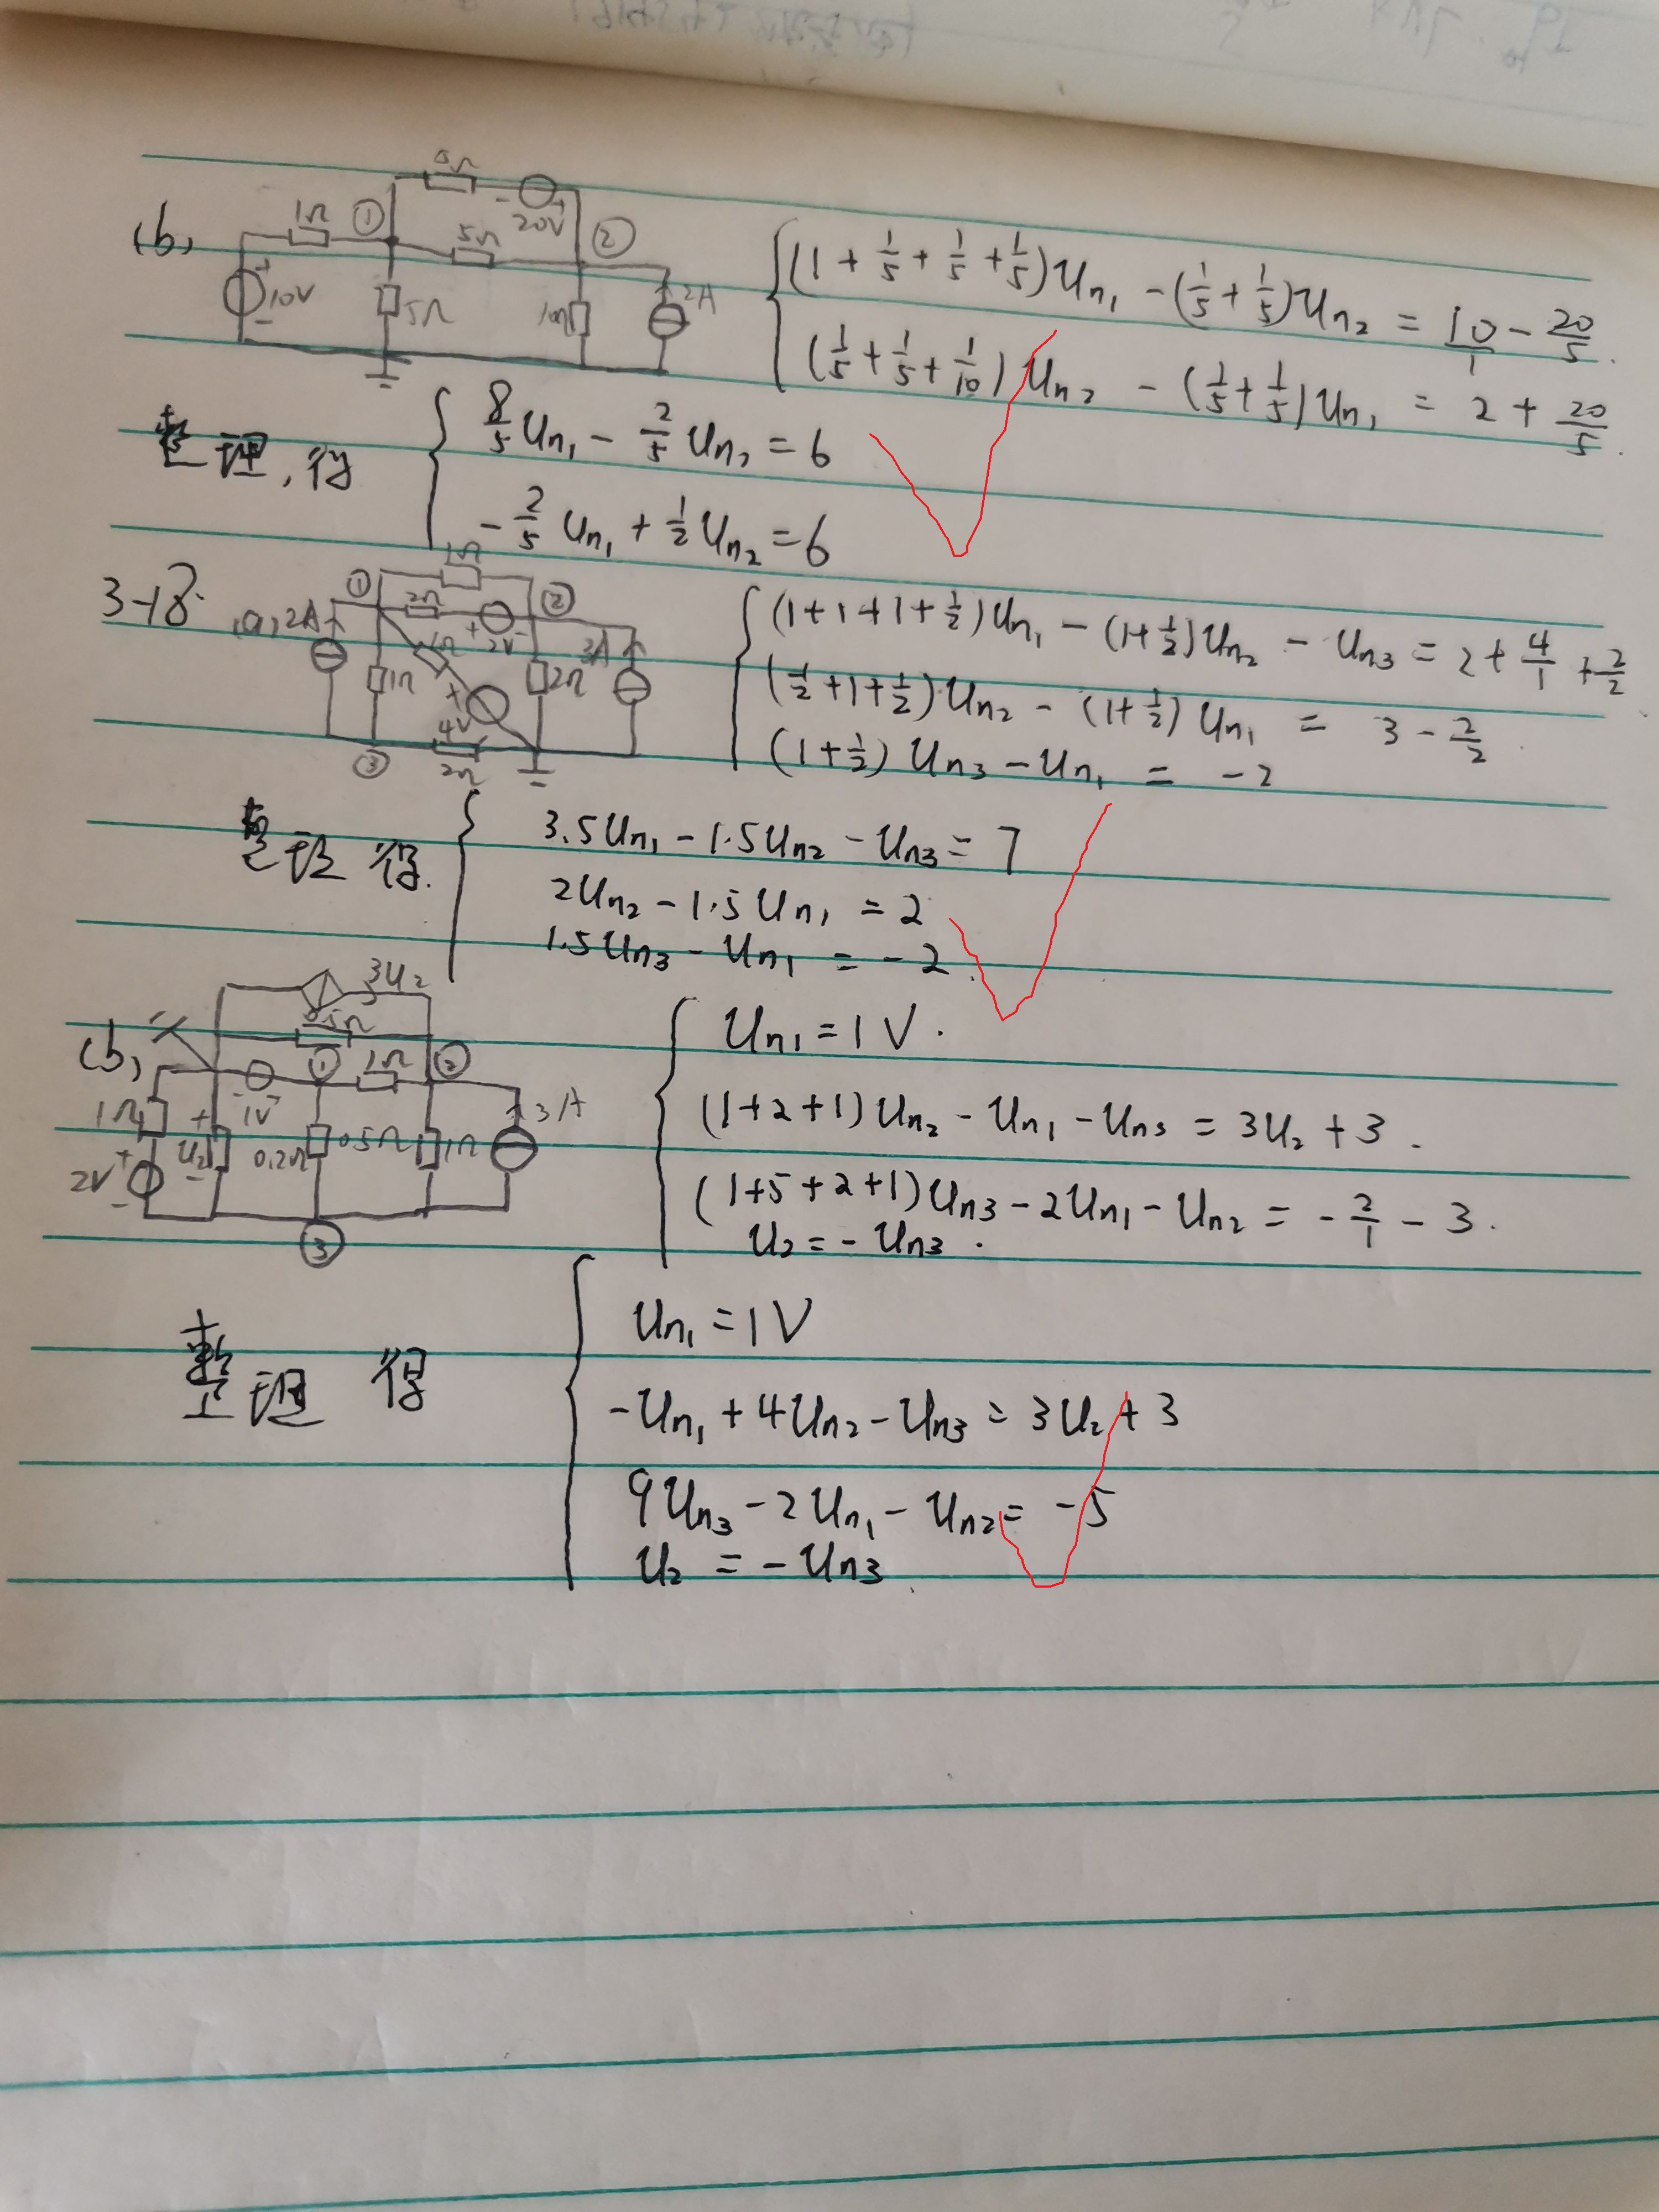 (b)
1Ω ① 5Ω - 20V + ②
10V 5Ω 5Ω 10Ω 2A
(1 + 1/5 + 1/5 + 1/5)Un₁ - (1/5 + 1/5)Un₂ = 10/1 - 20/5.
(1/5 + 1/5 + 1/10)Un₂ - (1/5 + 1/5)Un₁ = 2 + 20/5.
整理,得
8/5 Un₁ - 2/5 Un₂ = 6
-2/5 Un₁ + 1/2 Un₂ = 6
3-18.
(a) 2A ① 1Ω 2Ω + 2V - ② 3A
1Ω 1Ω + 4V 2Ω
③ 2Ω
(1+1+1+1/2)Un₁ - (1+1/2)Un₂ - Un₃ = 2 + 4/1 + 2/2
(1/2+1+1/2)Un₂ - (1+1/2)Un₁ = 3 - 2/2.
(1+1/2)Un₃ - Un₁ = -2
整理得.
3.5Un₁ - 1.5Un₂ - Un₃ = 7
2Un₂ - 1.5Un₁ = 2
1.5Un₃ - Un₁ = -2.
(b)
3U₂
0.5Ω
- 1V + ① 1Ω ②
1Ω + U₂ - 0.2Ω 0.5Ω 1Ω 3A
2V + -
③
Un₁ = 1V.
(1+2+1)Un₂ - Un₁ - Un₃ = 3U₂ + 3.
(1+5+2+1)Un₃ - 2Un₁ - Un₂ = -2/1 - 3.
U₂ = -Un₃.
整理得
Un₁ = 1V
-Un₁ + 4Un₂ - Un₃ = 3U₂ + 3
9Un₃ - 2Un₁ - Un₂ = -5
U₂ = -Un₃.